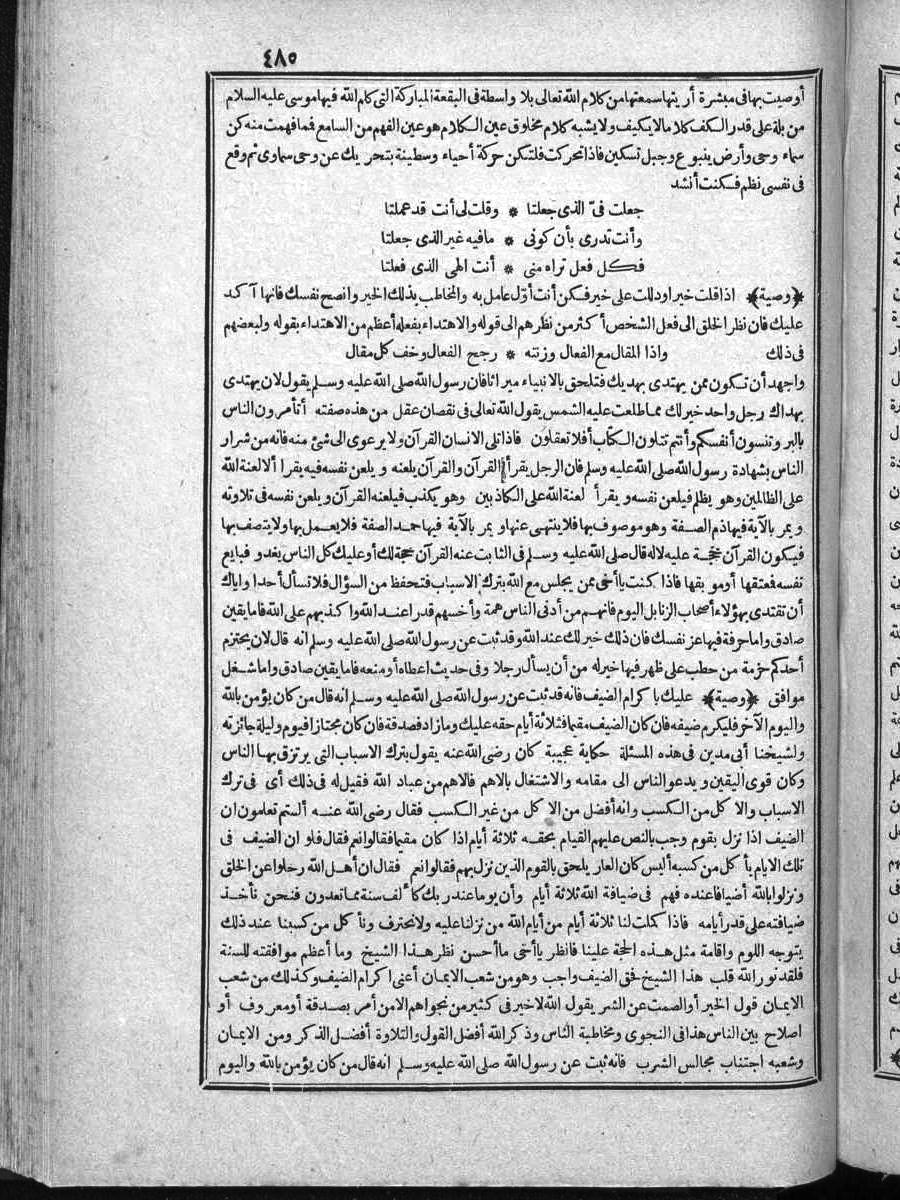 ٤٨٥
أوصيت بها فى مبشرة أريتها سمعتها من كلام الله تعالى بلا واسطة فى البقعة المباركة التى كلم الله فيها موسى عليه السلام
من بلة على قدر الكف كلاما لا يكيف ولا يشبه كلام مخلوق عين الكلام هو عين الفهم من السامع فما فهمت منه كن
سماء وحى وأرض ينبوع وجبل تسكين فاذا تحركت فلتكن حركة أحياء وسطينة بتحريك عن وحى سماوى ثم وقع
فى نفسى نظم فكنت أنشد
جعلت فىّ الذى جعلتا * وقلت لى أنت قد عملتا
وأنت تدرى بأن كونى * مافيه غير الذى جعلتا
فكل فعل تراه منى * أنت الهى الذى فعلتا
﴿وصية﴾ اذا قلت خيرا ودللت على خير فكن أنت أوّل عامل به والمخاطب بذلك الخير وانصح نفسك فانها آكد
عليك فان نظر الخلق الى فعل الشخص أكثر من نظرهم الى قوله والاهتداء بفعله أعظم من الاهتداء بقوله ولبعضهم
فى ذلك واذا المقال مع الفعال وزنته * رجح الفعال وخف كل مقال
واجهد أن تكون ممن يهتدى بهديك فتلحق بالانبياء ميراثا فان رسول الله صلى الله عليه وسلم يقول لان يهتدى
بهداك رجل واحد خير لك مما طلعت عليه الشمس يقول الله تعالى فى نقصان عقل من هذه صفته أتأمرون الناس
بالبر وتنسون أنفسكم وأنتم تتلون الكتاب أفلا تعقلون فاذا تلى الانسان القرآن ولا يرعوى الى شئ منه فانه من شرار
الناس بشهادة رسول الله صلى الله عليه وسلم فان الرجل يقرأ القرآن والقرآن يلعنه ويلعن نفسه فيه يقرأ ألا لعنة الله
على الظالمين وهو يظلم فيلعن نفسه ويقرأ لعنة الله على الكاذبين وهو يكذب فيلعنه القرآن ويلعن نفسه فى تلاوته
ويمر بالآية فيها ذم الصفة وهو موصوف بها فلا ينتهى عنها ويمر بالآية فيها حمد الصفة فلا يعمل بها ولا يتصف بها
فيكون القرآن حجة عليه لا له قال صلى الله عليه وسلم فى الثابت عنه القرآن حجة لك أو عليك كل الناس يغدو فبايع
نفسه فمعتقها أو موبقها فاذا كنت يا أخى ممن يجلس مع الله بترك الاسباب فتحفظ من السؤال فلا تسأل أحدا واياك
أن تقتدى بهؤلاء أصحاب الزنابل اليوم فانهم من أدنى الناس همة وأخسهم قدرا عند الله وأكذبهم على الله فاما يقين
صادق واما حرفة فيها عز نفسك فان ذلك خير لك عند الله وقد ثبت عن رسول الله صلى الله عليه وسلم انه قال لان يحتزم
أحدكم حزمة من حطب على ظهره فيها خير له من أن يسأل رجلا وفى حديث اعطاه أو منعه فاما يقين صادق واما شغل
موافق ﴿وصية﴾ عليك باكرام الضيف فانه قد ثبت عن رسول الله صلى الله عليه وسلم انه قال من كان يؤمن بالله
واليوم الآخر فليكرم ضيفه فان كان الضيف مقيما فثلاثة أيام حقه عليك وما زاد فصدقة فان كان مجتازا فيوم وليلة جائزته
ولشيخنا أبى مدين فى هذه المسئلة حكاية عجيبة كان رضى الله عنه يقول بترك الاسباب التى يرتزق بها الناس
وكان قوى اليقين ويدعو الناس الى مقامه والاشتغال بالاهم فالاهم من عباد الله فقيل له فى ذلك أى فى ترك
الاسباب والاكل من الكسب وانه أفضل من الاكل من غير الكسب فقال رضى الله عنه ألستم تعلمون ان
الضيف اذا نزل بقوم وجب بالنص عليهم القيام بحقه ثلاثة أيام اذا كان مقيما فقالوا نعم فقال فلو ان الضيف فى
تلك الايام يأكل من كسبه أليس كان العار يلحق بالقوم الذين نزل بهم فقالوا نعم فقال ان أهل الله رحلوا عن الخلق
ونزلوا بالله أضيافا عنده فهم فى ضيافة الله ثلاثة أيام وأن يوما عند ربك كألف سنة مما تعدون فنحن نأخذ
ضيافته على قدر أيامه فاذا كملت لنا ثلاثة أيام من أيام الله من نزلنا عليه ولا نحترف ونأكل من كسبنا عند ذلك
يتوجه اللوم واقامة مثل هذه الحجة علينا فانظر يا أخى ما أحسن نظر هذا الشيخ وما أعظم موافقته للسنة
فلقد نور الله قلب هذا الشيخ فحق الضيف واجب وهو من شعب الايمان أعنى اكرام الضيف وكذلك من شعب
الايمان قول الخير أو الصمت عن الشر يقول الله لا خير فى كثير من نجواهم الا من أمر بصدقة أو معروف أو
اصلاح بين الناس هذا فى النجوى ومخاطبة الناس وذكر الله أفضل القول والتلاوة أفضل الذكر ومن الايمان
وشعبه اجتناب مجالس الشرب فانه ثبت عن رسول الله صلى الله عليه وسلم انه قال من كان يؤمن بالله واليوم